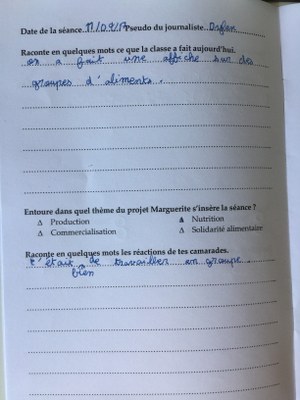 Date de la séance..17/09/17 Pseudo du journaliste..Dylan
Raconte en quelques mots ce que la classe a fait aujourd'hui.
on a fait une affiche sur des
groupes d'aliments.
Entoure dans quel thème du projet Marguerite s'insère la séance ?
Δ Production
Δ Nutrition
Δ Commercialisation
Δ Solidarité alimentaire
Raconte en quelques mots les réactions de tes camarades.
c'était de travailler en groupe.
bien